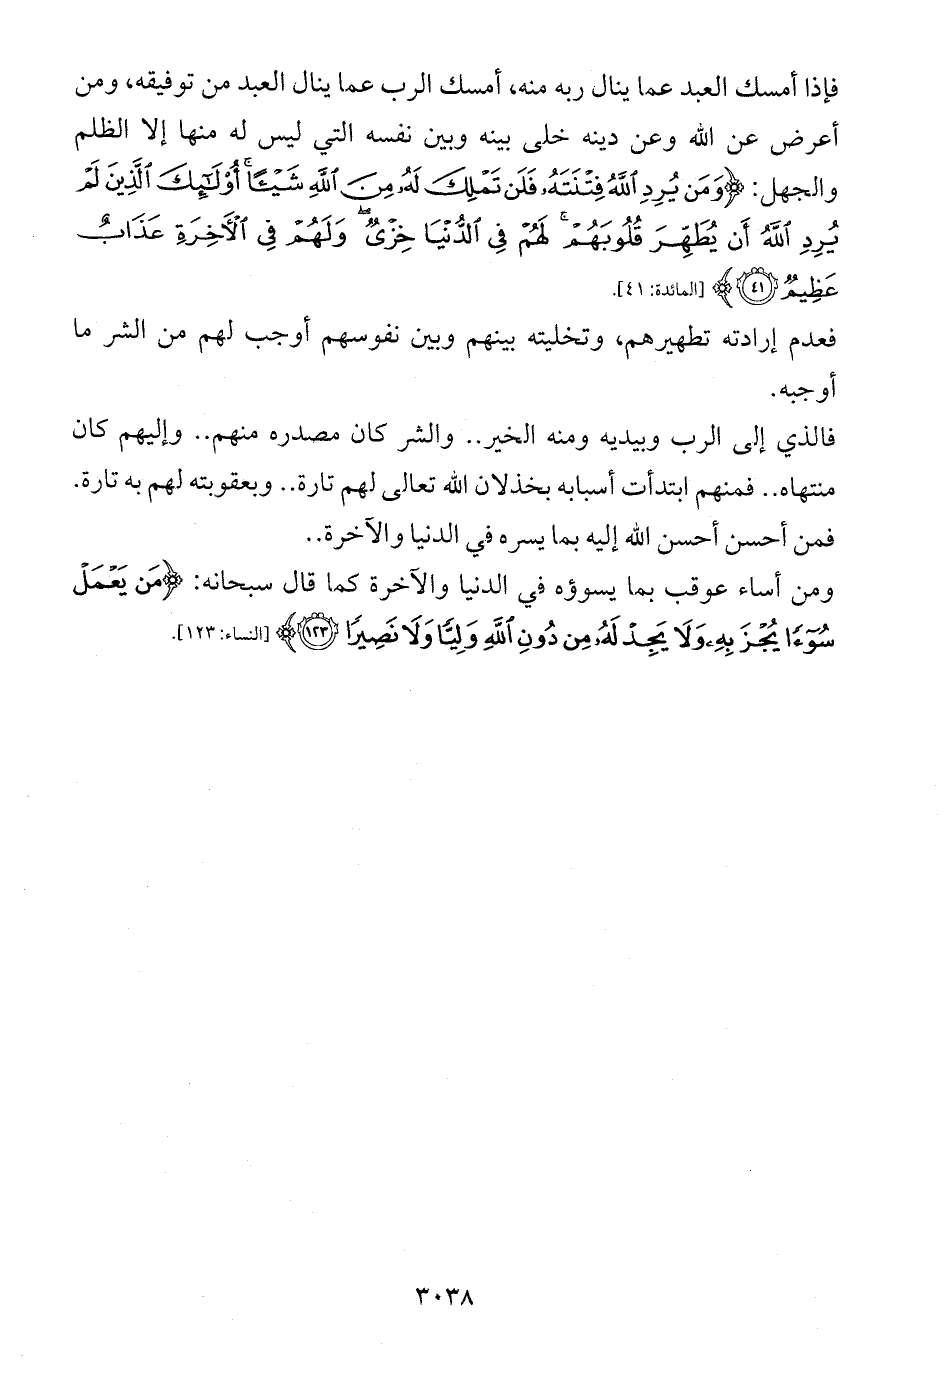 فإذا أمسك العبد عما ينال ربه منه، أمسك الرب عما ينال العبد من توفيقه، ومن
أعرض عن الله وعن دينه خلى بينه وبين نفسه التي ليس له منها إلا الظلم
والجهل: ﴿وَمَن يُرِدِ ٱللَّهُ فِتۡنَتَهُۥ فَلَن تَمۡلِكَ لَهُۥ مِنَ ٱللَّهِ شَيۡـًٔاۚ أُوْلَٰٓئِكَ ٱلَّذِينَ لَمۡ
يُرِدِ ٱللَّهُ أَن يُطَهِّرَ قُلُوبَهُمۡۚ لَهُمۡ فِي ٱلدُّنۡيَا خِزۡيٞۖ وَلَهُمۡ فِي ٱلۡأٓخِرَةِ عَذَابٌ
عَظِيمٞ ٤١﴾ [المائدة: ٤١].
فعدم إرادته تطهيرهم، وتخليته بينهم وبين نفوسهم أوجب لهم من الشر ما
أوجبه.
فالذي إلى الرب وبيديه ومنه الخير.. والشر كان مصدره منهم.. وإليهم كان
منتهاه.. فمنهم ابتدأت أسبابه بخذلان الله تعالى لهم تارة.. وبعقوبته لهم به تارة.
فمن أحسن أحسن الله إليه بما يسره في الدنيا والآخرة..
ومن أساء عوقب بما يسوؤه في الدنيا والآخرة كما قال سبحانه: ﴿مَن يَعۡمَلۡ
سُوٓءٗا يُجۡزَ بِهِۦ وَلَا يَجِدۡ لَهُۥ مِن دُونِ ٱللَّهِ وَلِيّٗا وَلَا نَصِيرٗا ١٢٣﴾ [النساء: ١٢٣].
٣٠٣٨